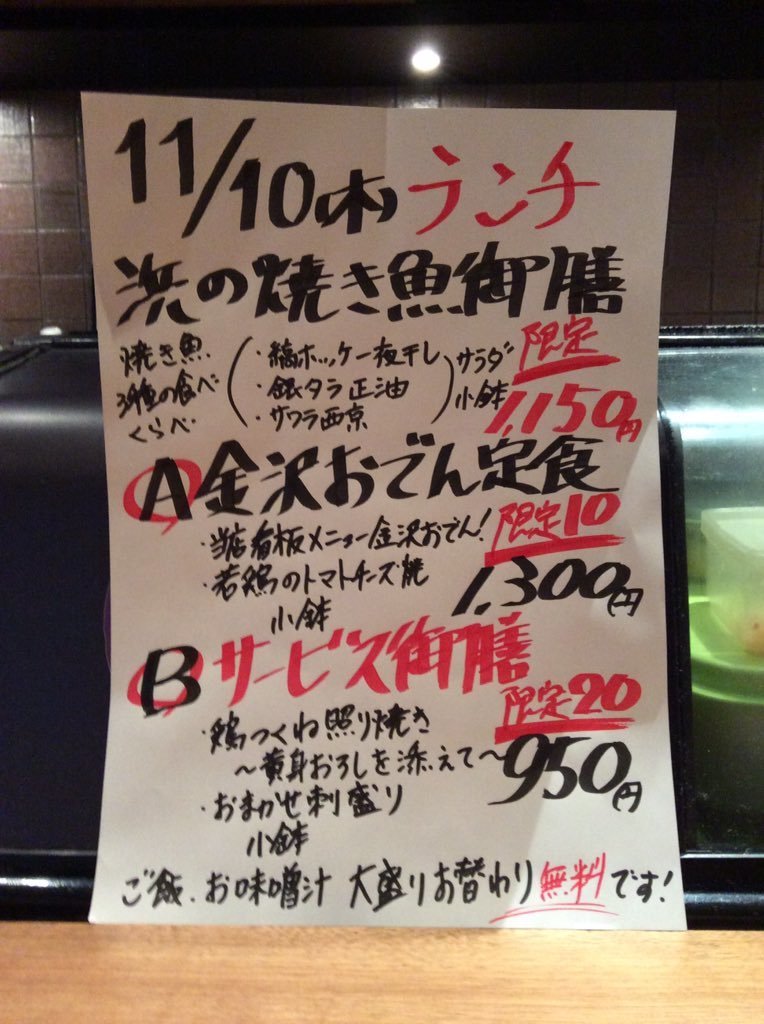 11/10(木)ランチ
浜の焼き魚御膳
焼き魚
3種の食べ
くらべ
・縞ホッケ一夜干し
・銀タラ正油
・サワラ西京
サラダ
小鉢
限定
1,150円
A金沢おでん定食
・当店看板メニュー金沢おでん!
限定10
・若鶏のトマトチーズ焼
小鉢
1,300円
Bサービス御膳
限定20
・鶏つくね照り焼き
〜黄身おろしを添えて〜
950円
・おまかせ刺盛り
小鉢
ご飯、お味噌汁 大盛りお替わり無料です!